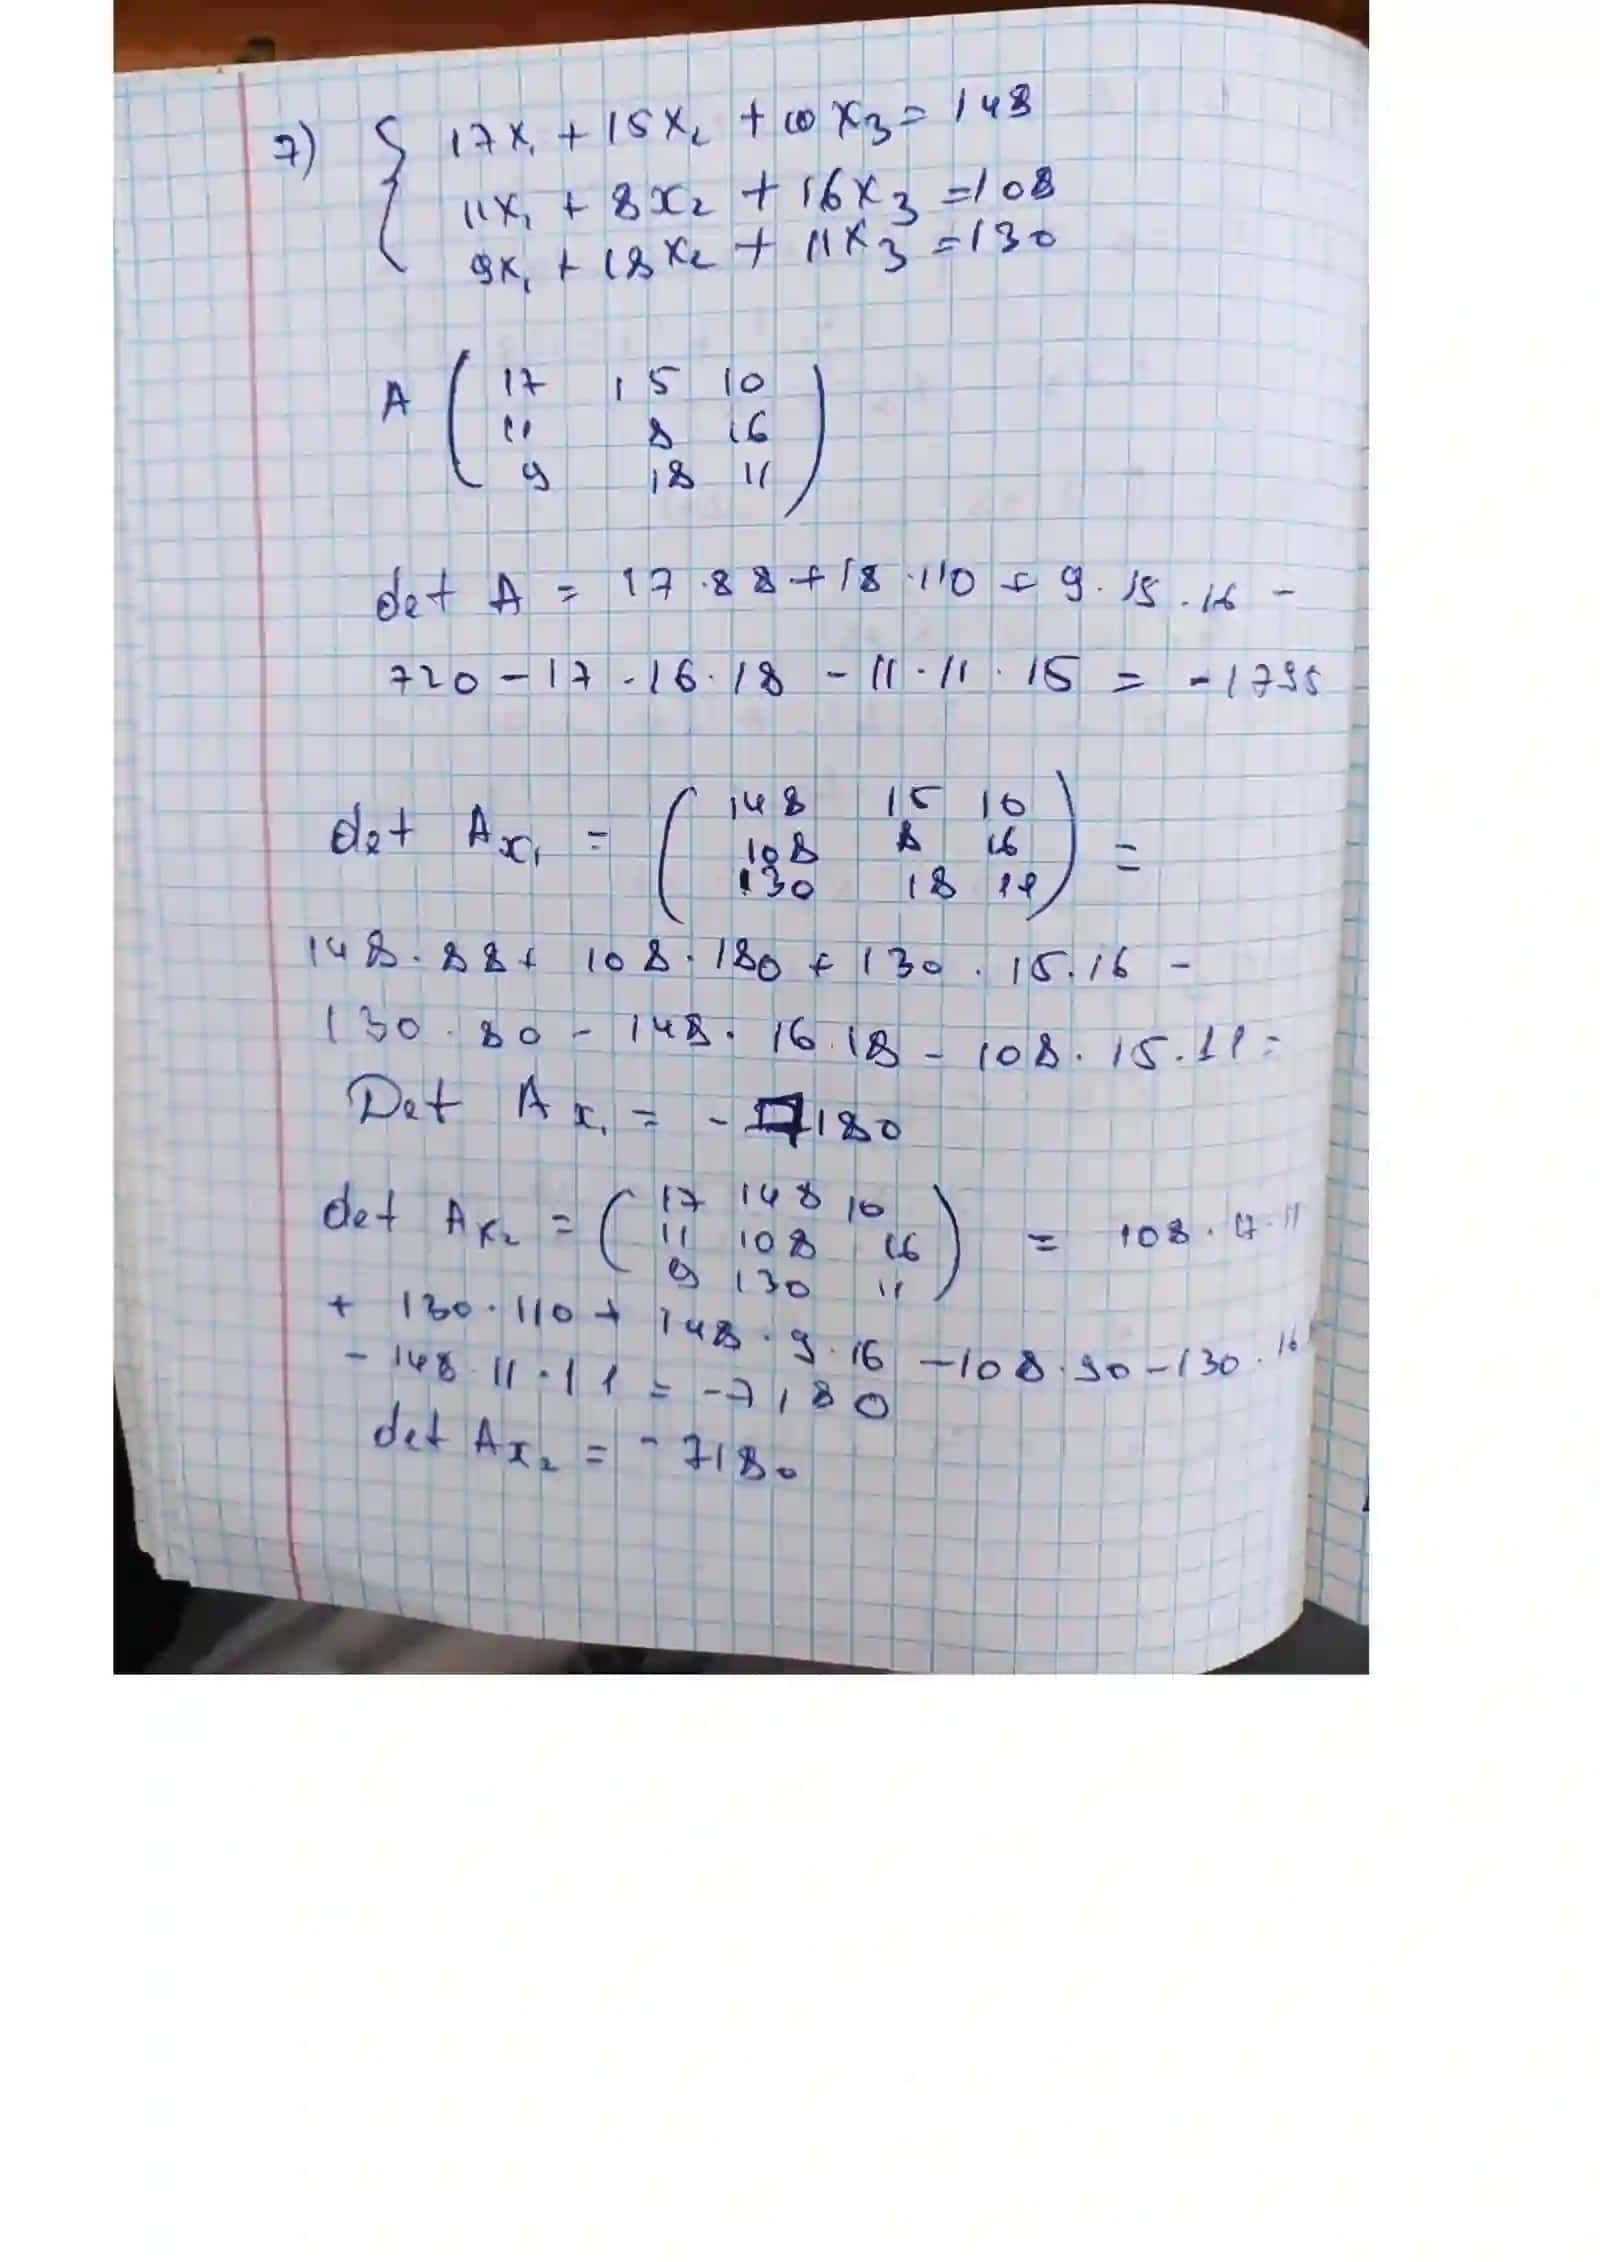 7) { 17x₁ + 15x₂ + 10x₃ = 148
11x₁ + 8x₂ + 16x₃ = 108
9x₁ + 18x₂ + 11x₃ = 130
A ( 17 15 10
11 8 16
9 18 11 )
det A = 17·88 + 18·110 + 9·15·16 -
720 - 17·16·18 - 11·11·15 = -1795
det Ax₁ = ( 148 15 10
108 8 16
130 18 11 ) =
148·88 + 108·180 + 130·15·16 -
130·80 - 148·16·18 - 108·15·11 =
Det Ax₁ = -7180
det Ax₂ = ( 17 148 10
11 108 16
9 130 11 ) = 108·17·11
+ 130·110 + 148·9·16 - 108·90 - 130·16
- 148·11·11 = -7180
det Ax₂ = -7180